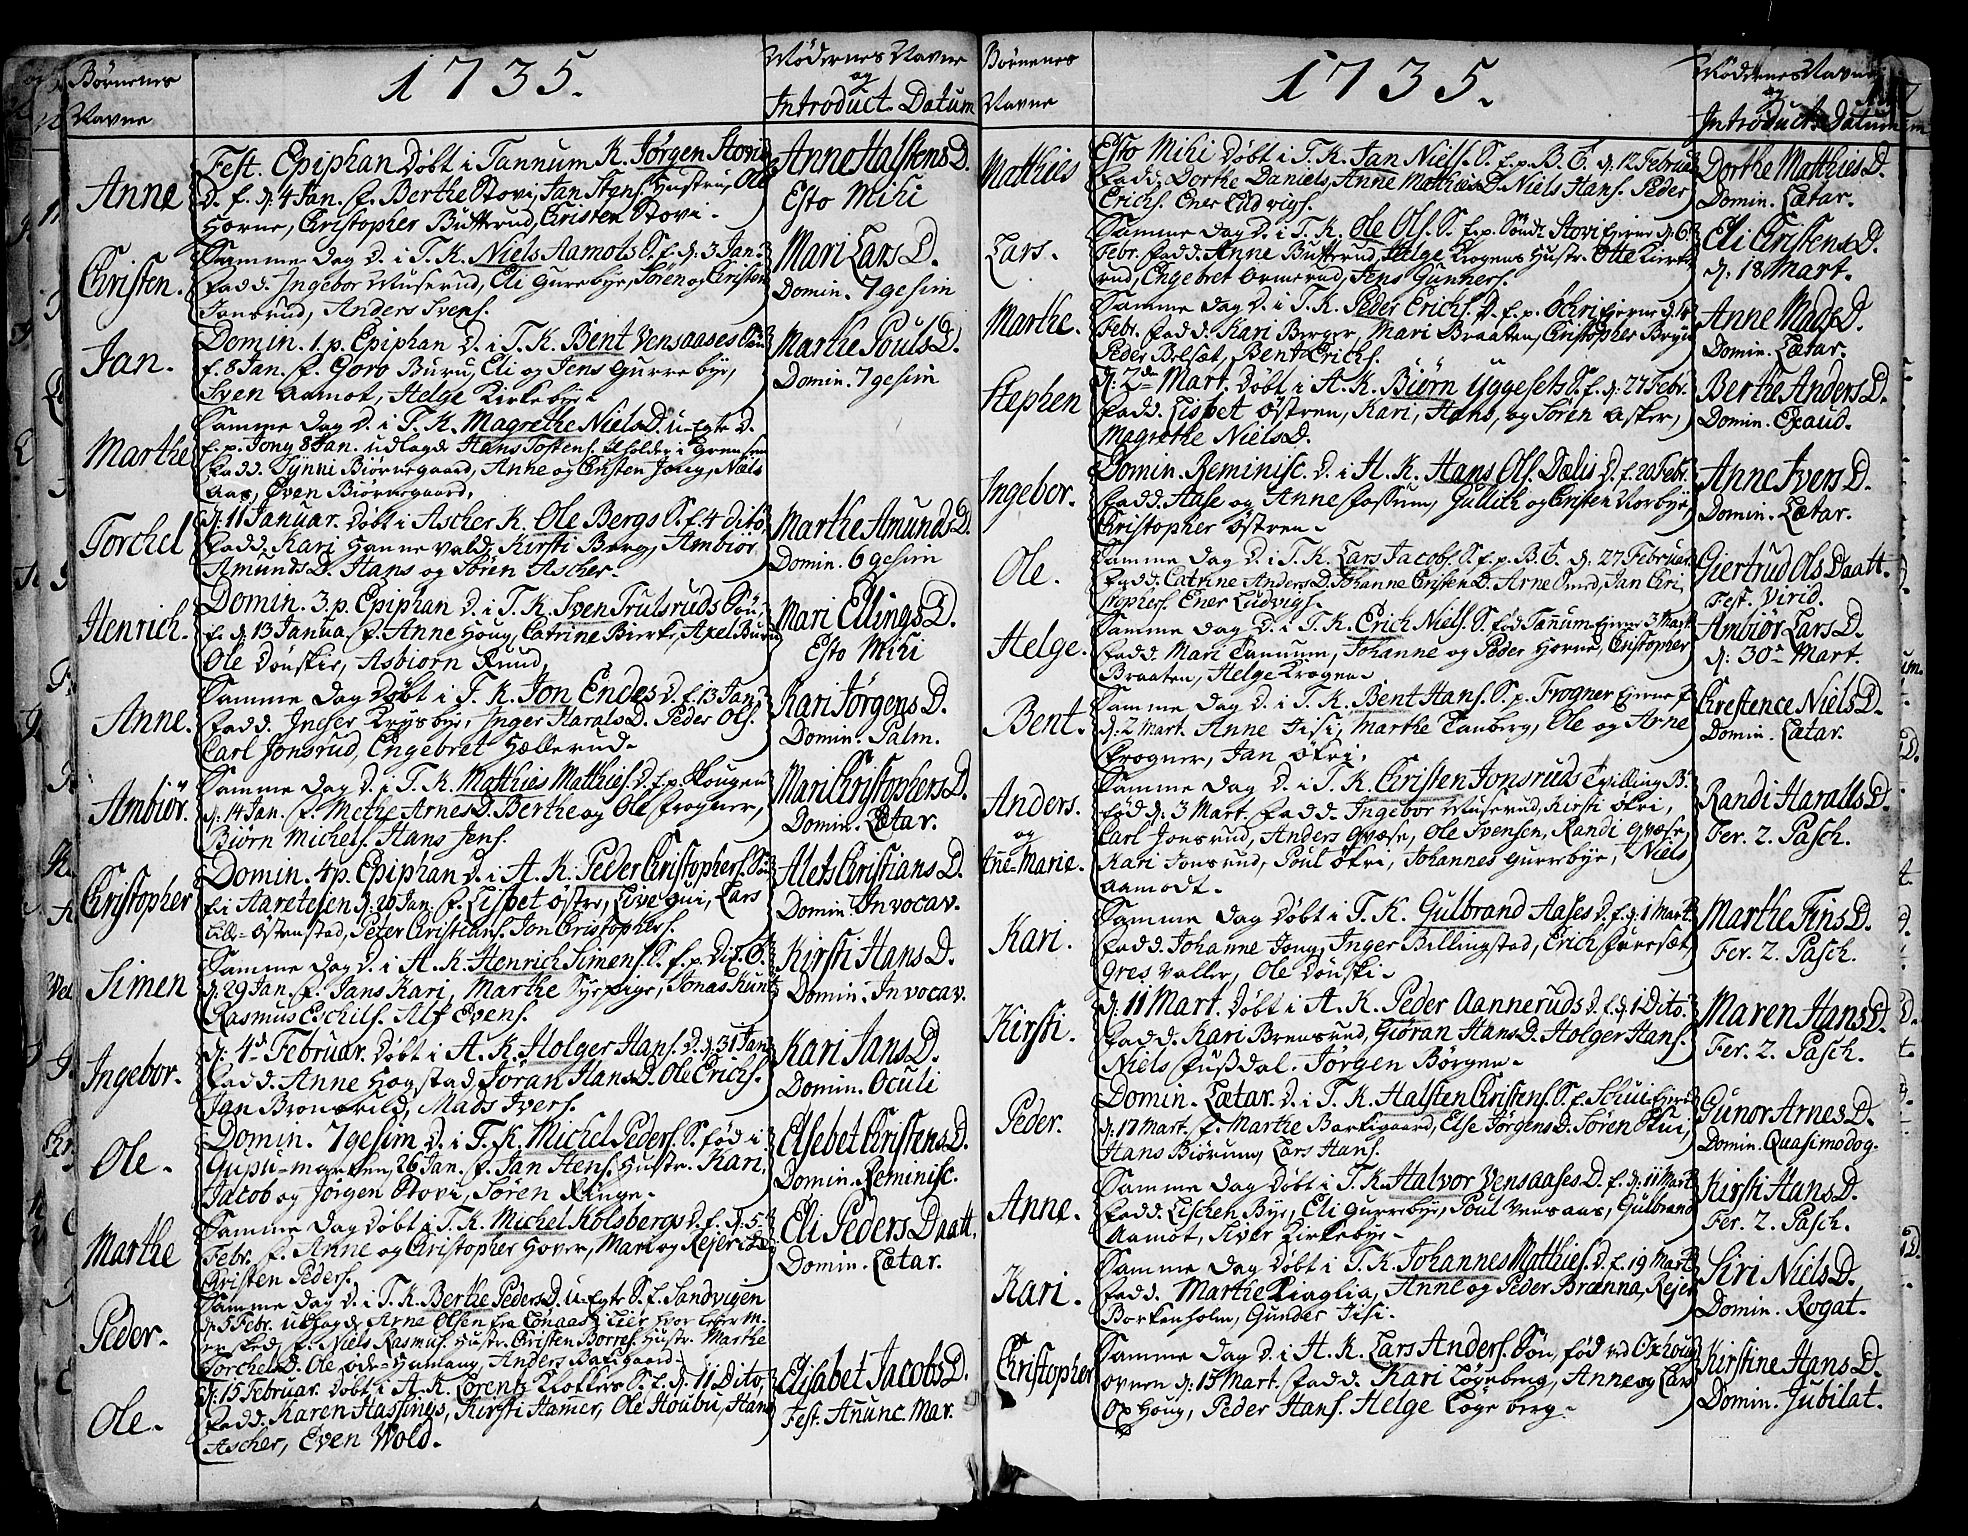 Børnenes
Navne
1735.
Mødernes Navne
og
Introduct. Datum
Anne
Fest. Epiphan Døbt i Tannum K. Jørgen Stovi
D. f. d. 4 Jan. F. Berthe Stovi, Jan Stens. Hustru, Ole
Horne, Christopher Butterud, Christen Stovi.
Anne Halstens D.
Esto Mihi
Christen.
Samme dag D. i T. K. Niels Aamots S. f. d. 3 Jan.
Fadd. Ingebor Muserud, Eli Gurrebye, Søren og Christen
Jonsrud, Anders Svens.
Mari Lars D.
Domin. 7gesim
Jan.
Domin. 1. p. Epiphan D. i T. K. Bent Vensaases Søn
f. 8 Jan. F. Goro Buru, Eli og Jens Gurrebye,
Sven Aamot, Helge Kirkebye.
Marthe Pouls D.
Domin. 7gesim
Marthe
Samme dag D. i T. K. Magrethe Niels D. u-Egte D.
f. p. Jong 8 Jan. udlagde Hans Tostens.
Fadd. Gynni Biørnegaard, Anne og Christen Jong, Niels
Aas, Even Biørnegaard.
Torchel
d. 11 Januar. Døbt i Ascher K. Ole Bergs S. f. 4 dito
Fadd. Kari Hannevald, Kirsti Berg, Ambiør
Amunds D. Hans og Søren Ascher.
Marthe Amunds D.
Domin. 6gesim
Henrich.
Domin. 3. p. Epiphan D. i T. K. Sven Trulsruds Søn
f. d. 13 Janua. F. Anne Houg, Catrine Bierke, Axel Buru
Ole Dønskie, Asbiørn Rund.
Mari Ellings D.
Esto Mihi
Anne.
Samme Dag Døbt i T. K. Jon Endes D. f. 13 Jan.
Fadd. Inger Rrysbye, Inger Harals D. Peder Ols.
Carl Jonsrud, Engebret Hællerud.
Kari Jørgens D.
Domin. Palm.
Ambiør.
Samme dag D. i T. K. Matthies Matthies. D. f. p. Skougen
d. 14 Jan. F. Methe Arnes D. Berthe og Ole Frogner,
Biørn Michels. Hans Jens.
Mari Christophers D.
Domin. Lætar.
Christopher
Domin. 4 p. Epiphan D. i A. K. Peder Christophers. Søn
f. i Aaretesen d. 26 Jan. F. Lisbet Østre, Live Gui, Lars
Lille-Østenstad, Peter Christians. Jon Christophers.
Alets Christians D.
Domin. Invocav.
Simen
Samme dag D. i A. K. Henrich Simens. S. f. p. Dit. C.
d. 29 Jan. F. Jans Kari, Marthe Syepige, Jonas Kunt
Rasmus Eschils. Alf Evens.
Kirsti Hans D.
Domin. Invocav.
Ingebor.
d. 4de Februar. Døbt i A. K. Holger Hans. D. d. 31 Jan
Fadd. Anne Hogstad, Jøran Hans D. Ole Erichs.
Jan Bronsvild, Mads Ivers.
Kari Jans D.
Domin. Oculi
Ole.
Domin. 7gesim D. i T. K. Michel Peders. S. fød i
Gupu-marken, 26 Jan. F. Jan Stens. Hustr. Kari,
Jacob og Jørgen Stovi, Søren Ringe.
Elsebet Christens D.
Domin. Reminisc.
Marthe
Samme Dag Døbt i T. K. Michel Kolsbergs D. f. d. 5
Febr. F. Anne og Christopher Hover, Mari og Rejer
Christen Peders.
Eli Peders Daatt.
Domin. Lætar.
Peder.
Samme dag D. i T. K. Berthe Peders D. u-Egte S. f. Sandvigen
d. 5 Febr. udlagde Arne Olsen fra
F. Niels Rasmus. Hustr. Christen Borres. Hustr. Marthe
Torchels D. Ole øde-Hamang, Anders Bakigaard.
Ole.
d. 15 Februar. Døbt i A. K. Lorentz Klokkers S. f. d. 11 Dito,
Fadd. Karen Hassings, Kirsti Hamer, Ole Houbu, Hans
Ascher, Even Wold.
Elisabet Jacobs D.
Fest. Anunc. Mar.
Børnenes
Navne
1735.
Mødernes Navne
og
Introducts Datum
Matthies
Esto Mihi Døbt i T. K. Jan Niels. S. f. p. B. E. d. 12 Februa
Fadd. Dorthe Daniels, Anne Mathies D. Niels Hans. Peder
Erichs. Ener Ludvigs.
Dorthe Matthies D.
Domin. Lætar.
Lars.
Samme Dag D. i T. K. Ole Ols. S. f. p. Søndr Stovi Ejerne d. 6
Febr. Fadd. Anne Butterud, Helge Krogens Hustr. Otte Kirke
rud, Engebret Ormerud, Jens Gunners.
Eli Christens D.
d. 18 Mart.
Marthe.
Samme dag D. i T. K. Peder Erichs. D. f. p. Økri Ejerne d.
Febr. Fadd. Kari Berger, Mari Braaten, Christopher Bryn
Peder Belset, Bent Erichs.
Anne Mads D.
Domin. Lætar.
Stephen
d. 2den Mart. Døbt i A. K. Biørn Uggesets S. f. d. 27 Febr.
Fadd. Lisbet Østren, Kari, Hans, og Søren Asker,
Magrethe Niels D.
Berthe Anders D.
Domin. Exaud.
Ingebor.
Domin. Reminisc. D. i A. K. Hans Ols. Dælis D. f. 20 Febr.
Fadd. Aase og Anne Fossum, Gullich og Christen Norbye,
Christopher Østren.
Anne Ivers D.
Domin. Lætar.
Ole.
Samme Dag D. i T. K. Lars Jacobs. S. f. p. B. E. d. 27 Februar.
Fadd. Catrine Anders D. Johanne Christen D. Arne Smed, Jan Chri
stophers. Ener Ludvigs.
Giertrud Ols Daatt.
Fest. Virid.
Helge.
Samme Dag D. i T. K. Erich Niels. S. fød Tanum Ejerne 3 Mart.
Fadd. Mari Tannum, Johanne og Peder Horne, Christopher
Braaten, Helge Krogen.
Ambiør Lars D.
d. 30te Mart.
Bent.
Samme dag D. i T. K. Bent Hans. S. p. Frogner Ejerne f.
d. 2 Mart. Anne Jisi, Marthe Tanberg, Ole og Arne
Frogner, Jan Økri.
Chrestence Niels D.
Domin. Lætar.
Anders.
og
Ane-Marie.
Samme dag D. i T. K. Christen Jonsruds Tvilling B.
fød d. 3 Mart. Fadd. Ingebor Muserud, Kirsti Økri,
Carl Jonsrud, Anders Qvæse, Ole Svensen, Randi Qvæse,
Kari Jonsrud, Poul Økri, Johannes Gurrebye, Niels
Aamodt.
Randi Haralls D.
Fer. 2. Pasch.
Kari.
Samme Dag Døbt i T. K. Gulbrand Aases D. f. d. 1 Mart.
Fadd. Johanne Jong, Inger Billingstad, Erich Furreset,
Gres Valler, Ole Dønski.
Marthe Fins D.
Fer. 2. Pasch.
Kirsti.
d. 11 Mart. Døbt i A. K. Peder Aanneruds D. f. d. 1 Dito.
Fadd. Kari Bremsrud, Giøran Hans D. Holger Hans.
Niels Fusdal. Jørgen Børgen.
Maren Hans D.
Fer. 2. Pasch.
Peder.
Domin. Lætar. D. i T. K. Halsten Christens. S. f. Schui Ejerne
d. 17 Mart. F. Marthe Bakigaard, Else Jørgens D. Søren Skui,
Hans Biørum, Lars Hans.
Gunor Arnes D.
Domin. Quasimodog.
Anne.
Samme Dag Døbt i T. K. Halvor Vensaases D. f. d. 11 Mart
Fadd. Lisbeh Bye, Eli Gurrebye, Poul Vensaas, Gulbrand
Aamot, Siver Kirkebye.
Kirsti Hans D.
Fer. 2. Pasch.
Kari.
Samme Dag Døbt i T. K. Johannes Matthies. D. f. 19 Mart
Fadd. Marthe Kiaglia, Anne og Peder Brænna, Rejer
Borkenholm, Gunder Jisi.
Siri Niels D.
Domin. Rogat.
Christopher
Samme Dag D. i A. K. Lars Anders. Søn, fød ved Oxhoug
ovnen d. 15 Mart. Fadd. Kari Løgeberg, Anne og Lars
Oxhoug, Peder Hans. Helge Løgeberg.
Kirstine Hans D.
Domin. Jubilat.